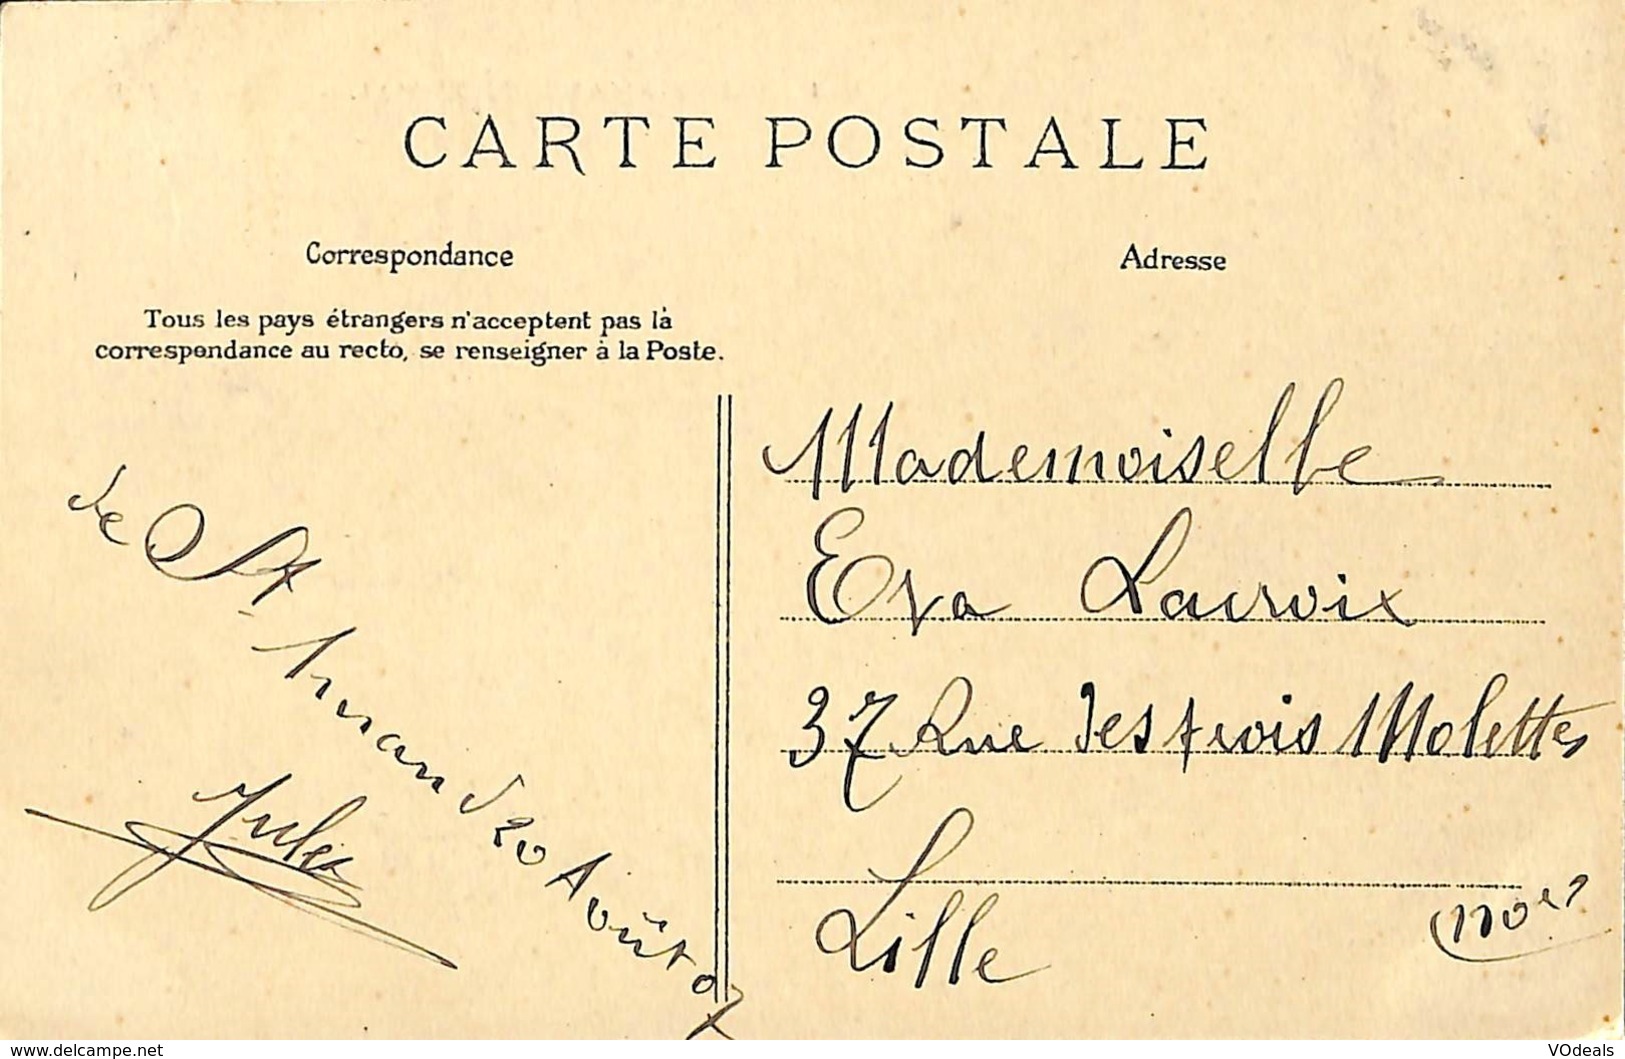 CARTE POSTALE
Correspondance
Tous les pays étrangers n'acceptent pas la
correspondance au recto, se renseigner à la Poste.
de St. Amand 20 Août 07
Jules
Adresse
Mademoiselle
Eva Lacroix
37 Rue des trois Molettes
Lille
www.delcampe.net
VOdeals